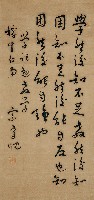 學然後知不足教然後知
困知不足然後能自反也知
困然後能自強也
宗孝忱